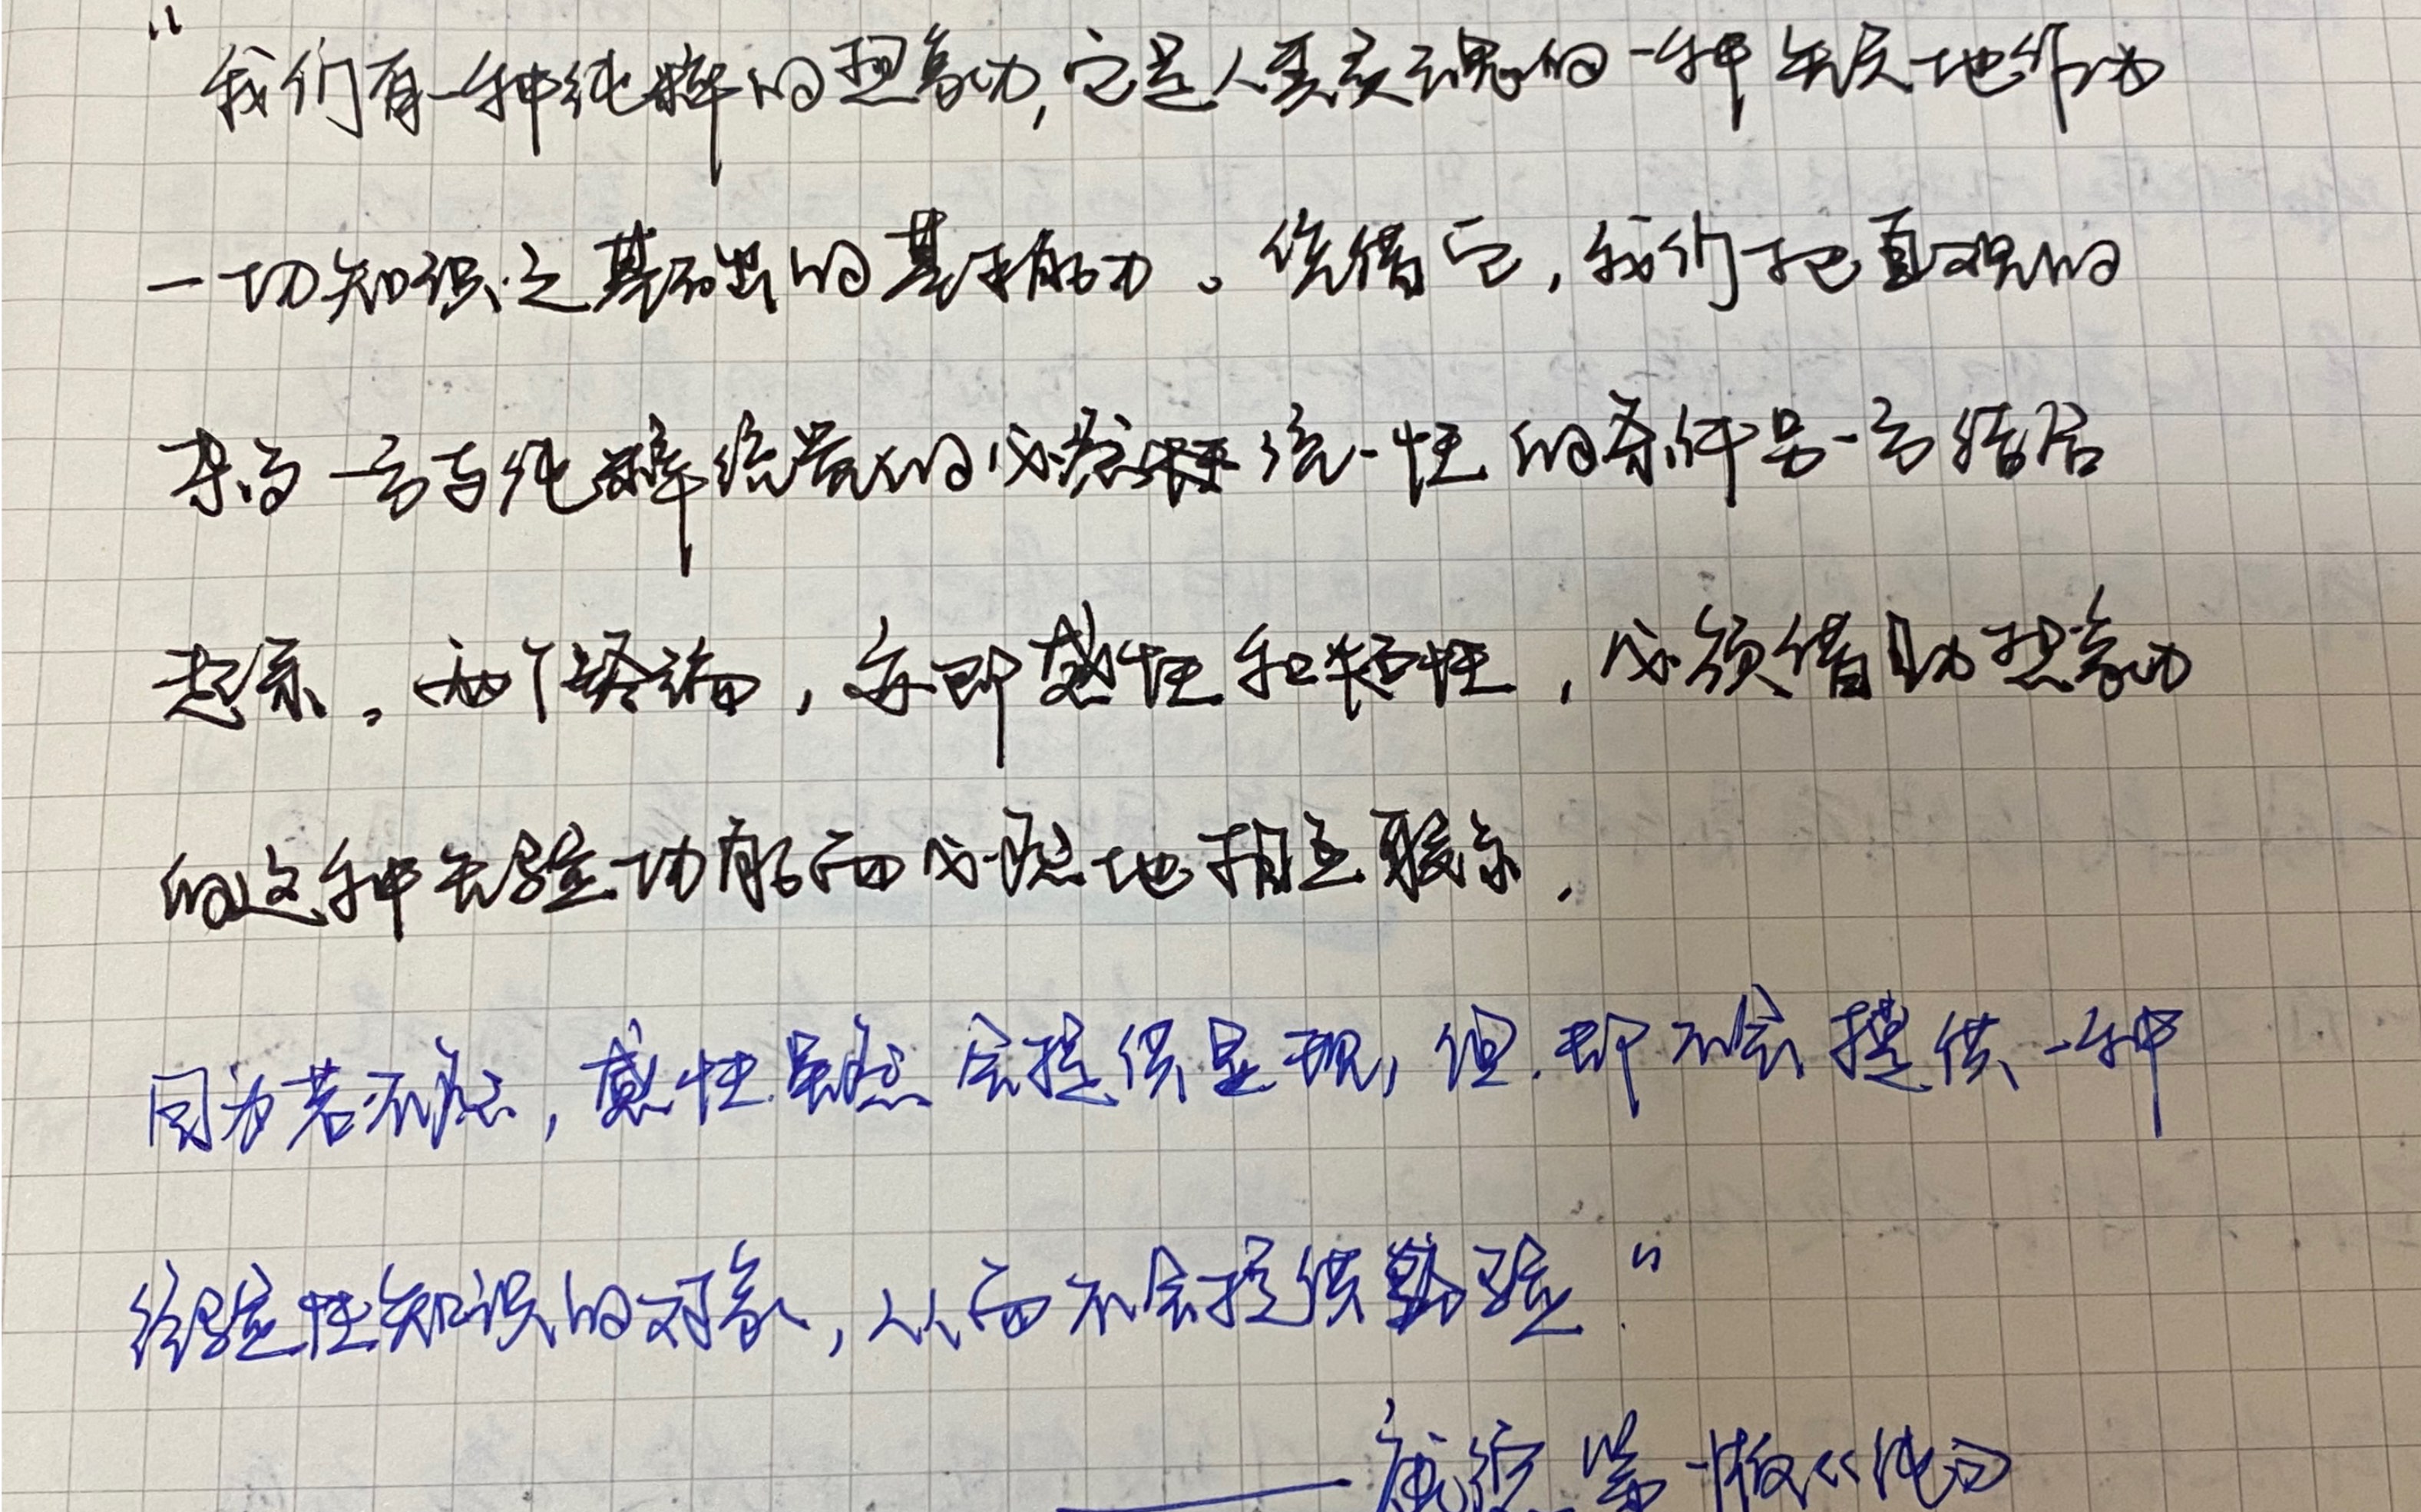 “我们有一种纯粹的想象力,它是人类灵魂的一种先天地作为
一切知识之基础的基本能力。凭借它,我们把直观的
杂多一方与纯粹统觉的必然 统一性的条件另一方结合
起来。两个终端,亦即感性和知性,必须借助想象力
的这种先验功能而必然地相互联系.
因为若不然,感性虽然会提供显现,但却不会提供一种
经验性知识的对象,从而不会提供 经验.”
——康德 第一版《纯